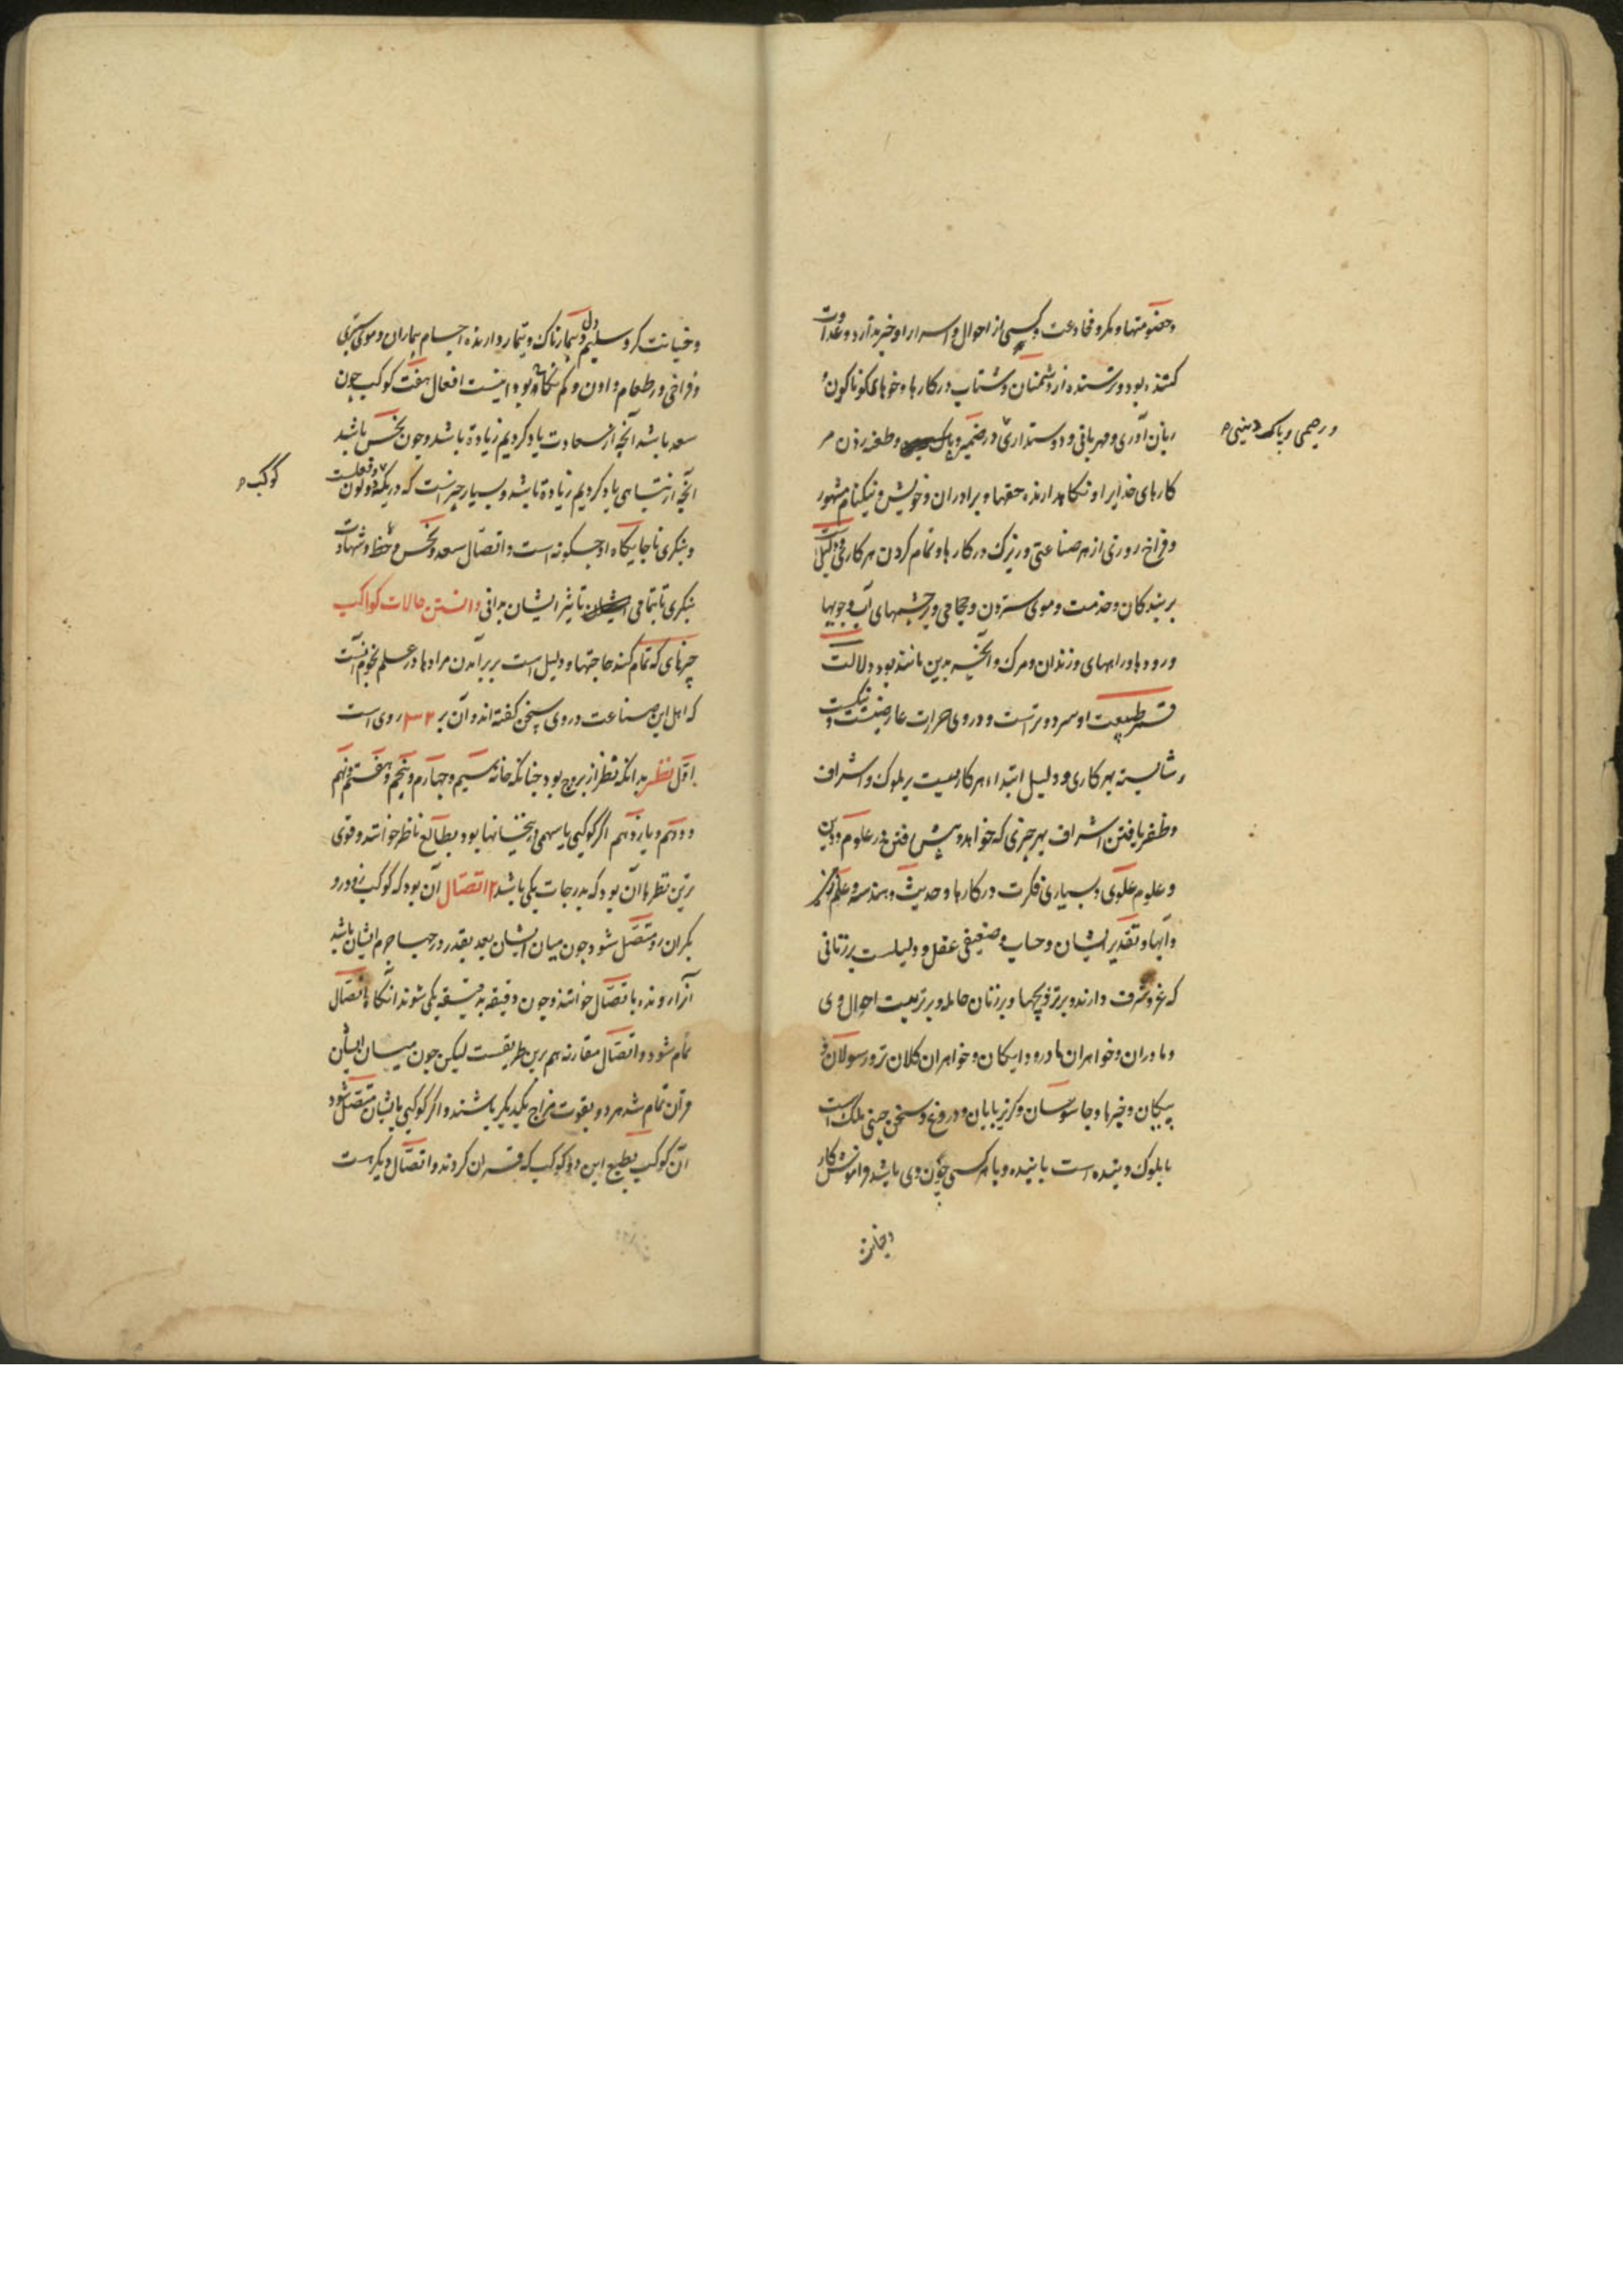 وخصومتها ومکر و مخادعت و کسی از احوال و اسرار او خبر ندارد و عداوت
کننده بود و ترسنده از دشمنان و شتاب در کارها و خوهای گوناگون
زبان آوری و مهربانی و دوستداری در ضمیر و وطعنه زدن مر
ورحیمی و پاک دینی
کارهای خدایرا و نکاهدارنده حقها و برادران و خویش و نیکنام مشهور
و فراخ روزی از هر صناعتی و زیرک در کارها و تمام کردن هر کاری و دلیل است
بر بندکان و خدمت و موی ستردن و حجامی و بر چشمهای آب و جویها
و رودها و راههای و زندان و مرک و آنچه بدین مانند بود دلالت
قمر طبیعت او سرد و تر است و در وی حرارت عارضیست و نیکست
و شایسته بهر کاری و دلیل ابتداء هر کاریست بر ملوک و اشراف
وظفر یافتن اشراف بهر چیزی که خواهد و پیش رفتن در علوم و دین
و علوم علوی و بسیاری فکرت در کارها و حدیث و هندسه و علم
و آبها و تقدیر ایشان و حساب و ضعیفی عقل و دلیلست بر زنانی
که عز و شرف دارند و بر تزویجها و بر زنان حامله و بر تربیت احوال وی
و مادران و خواهران مادر و دایکان و خواهران کلان تر و رسولان و
پیکان و خبرها و جاسوسان و کریزپایان و دروغ و سخن چینی ملک است
با ملوک و بنده است با بنده و با هر کسی چون وی باشد فراموش کار
وخیانت
وخیانت کر و سلیم دل و بیمارناک و تیمار دارنده اجسام بیماران و موی ستری
و فراخی در طعام دادن و کم نکاح بود اینست افعال هفت کوکب چون
سعد باشد آنچه از سعادت یاد کردیم زیاده باشد و چون نحس باشد
آنچه از تباهی یاد کردیم زیاده باشد و بسیار چیز است که در یک لون دو فعلست
کوکب
و بنکری تا جایکاه او چکونه است و اتصال سعد و نحس و حظ و شهادت
بنکری تا بتمامی تاثیر ایشان بدانی دانستن حالات کواکب
چیزهای که تمام کند حاجتها و دلیل است بر برآمدن مرادها در علم نجوم آنست
که اهل این صناعت در وی سخن کفته اند و آن بر روی است
اول نظر بدانکه نظر از بروج بود چنانکه خانه سیم و چهارم و پنجم و هفتم و نهم
و دهم و یازدهم اکر کوکبی یا سهمی درین خانها بود بطالع ناظر خوانند و قوی
ترین نظرها آن بود که بدرجات یکی باشد ۲ اتصال آن بود که کوکب زودرو
بکران رو متصل شود چون میان ایشان بعد بقدر درجهاء جرم ایشان باشد
آنرا رونده باتصال خوانند و چون دقیقه بدقیقه یکی شوند آنکاه اتصال
تمام شود و اتصال مقارنه هم برین طریقست لیکن چون میان ایشان
قران تمام شد هر دو بقوت مزاج یکدیکر باشند و اکر کوکبی بایشان متصل شود
آن کوکب بطبع این دو کوکب که قران کردند و اتصال دیکرست